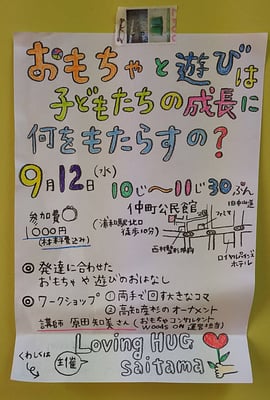 おもちゃと遊びは
子どもたちの成長に
何をもたらすの？
9月12日(水)
10じ〜11じ30ぷん
参加費
1000円
(材料費込み)
仲町公民館
(浦和駅北口
徒歩10分)
旧中山道
ロイヤルパインズ
ホテル
◎ 発達に合わせた
おもちゃや遊びのおはなし
◎ ワークショップ ①両手で回す大きなコマ
②高知産杉のオーナメント
講師 原田知美さん (おもちゃコンサルタント
woods on 運営担当)
くわしくは
主催
Loving HUG
saitama